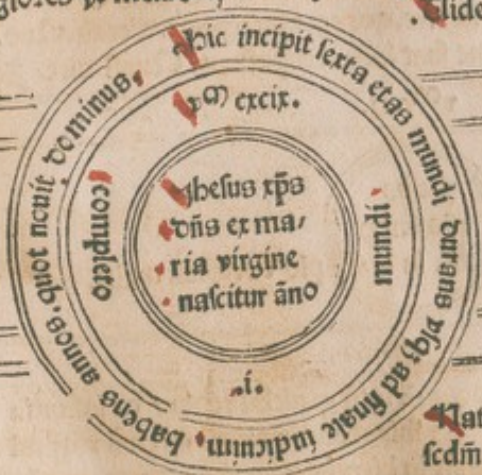 Hic incipit sexta etas mundi durans vsqꝫ ad finale iudicium. habens annos, quot nouit dominus.
v͞m excix.
mundi
.i.
completo
Jhesus xp̄s
dn̄s ex ma/
ria virgine
nascitur āno